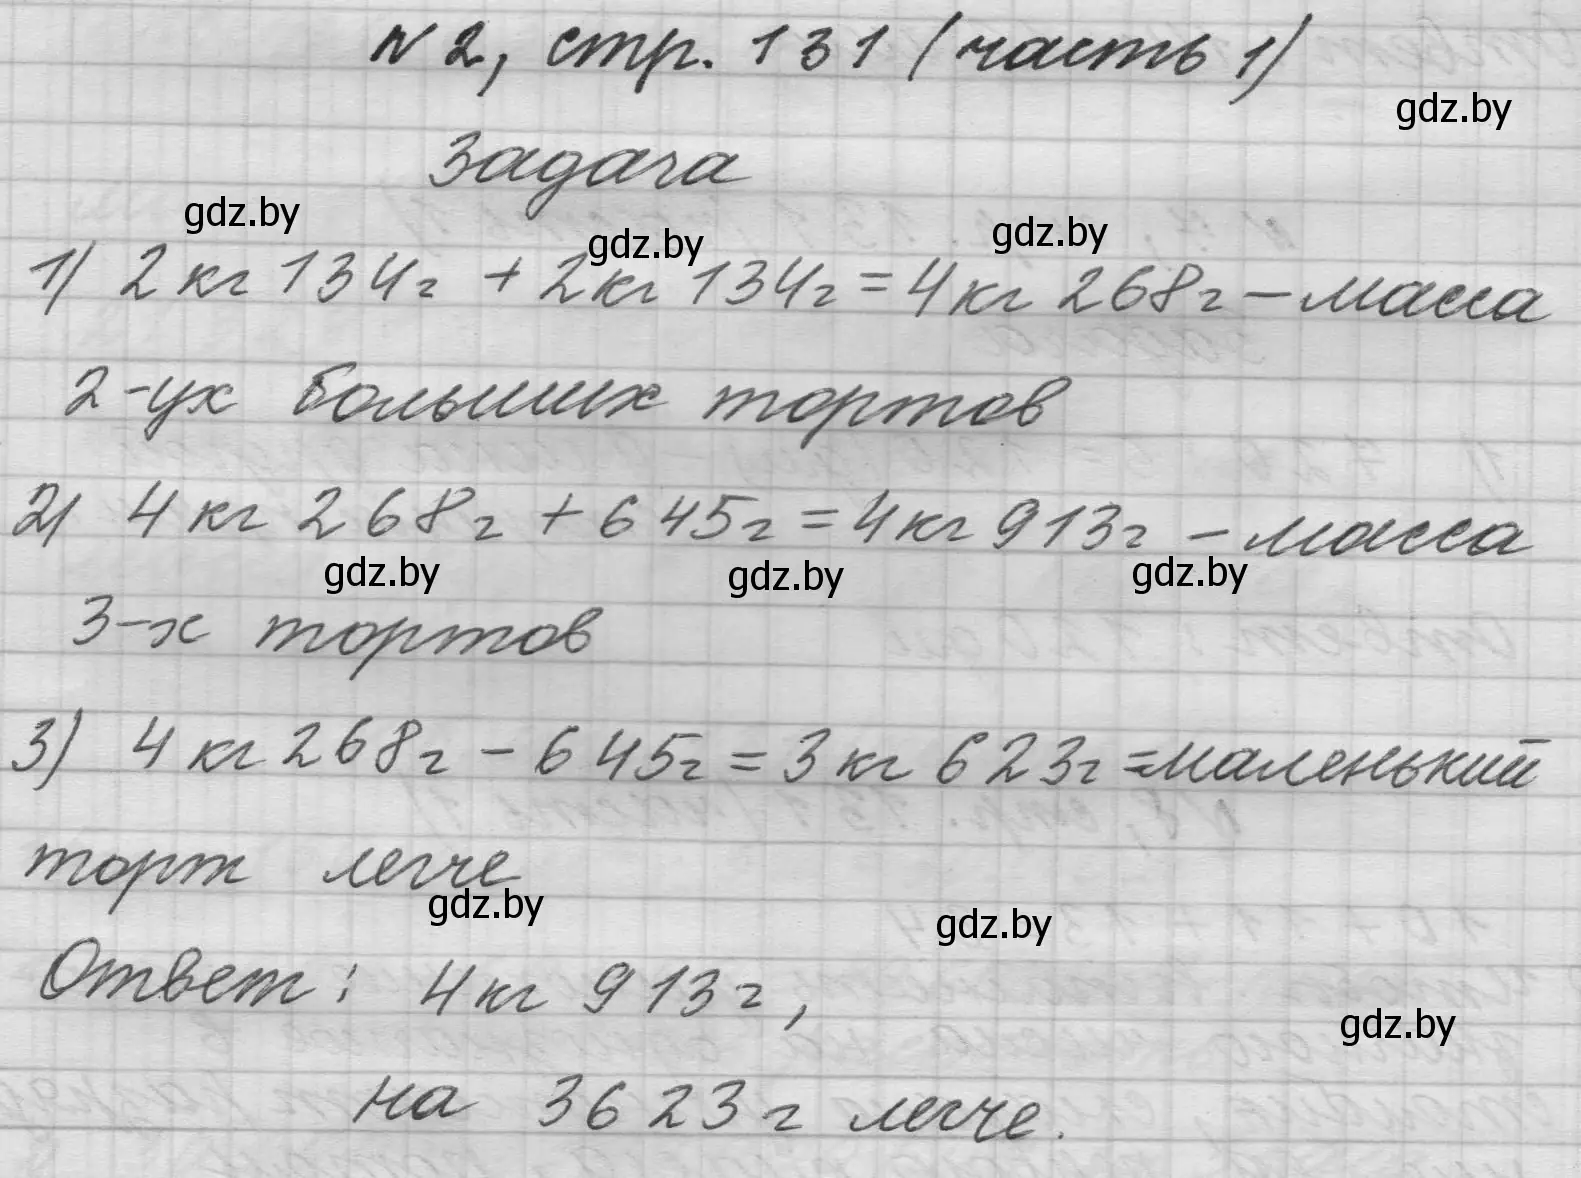 N 2, стр. 131 (часть 1)
gdz.by
Задача
gdz.by gdz.by gdz.by
1) 2 кг 134 г + 2 кг 134 г = 4 кг 268 г – масса
2-ух больших тортов
2) 4 кг 268 г + 645 г = 4 кг 913 г – масса
gdz.by gdz.by gdz.by
3-х тортов
3) 4 кг 268 г - 645 г = 3 кг 623 г = маленький
торт легче
gdz.by gdz.by
Ответ: 4 кг 913 г,
gdz.by
на 3623 г легче.